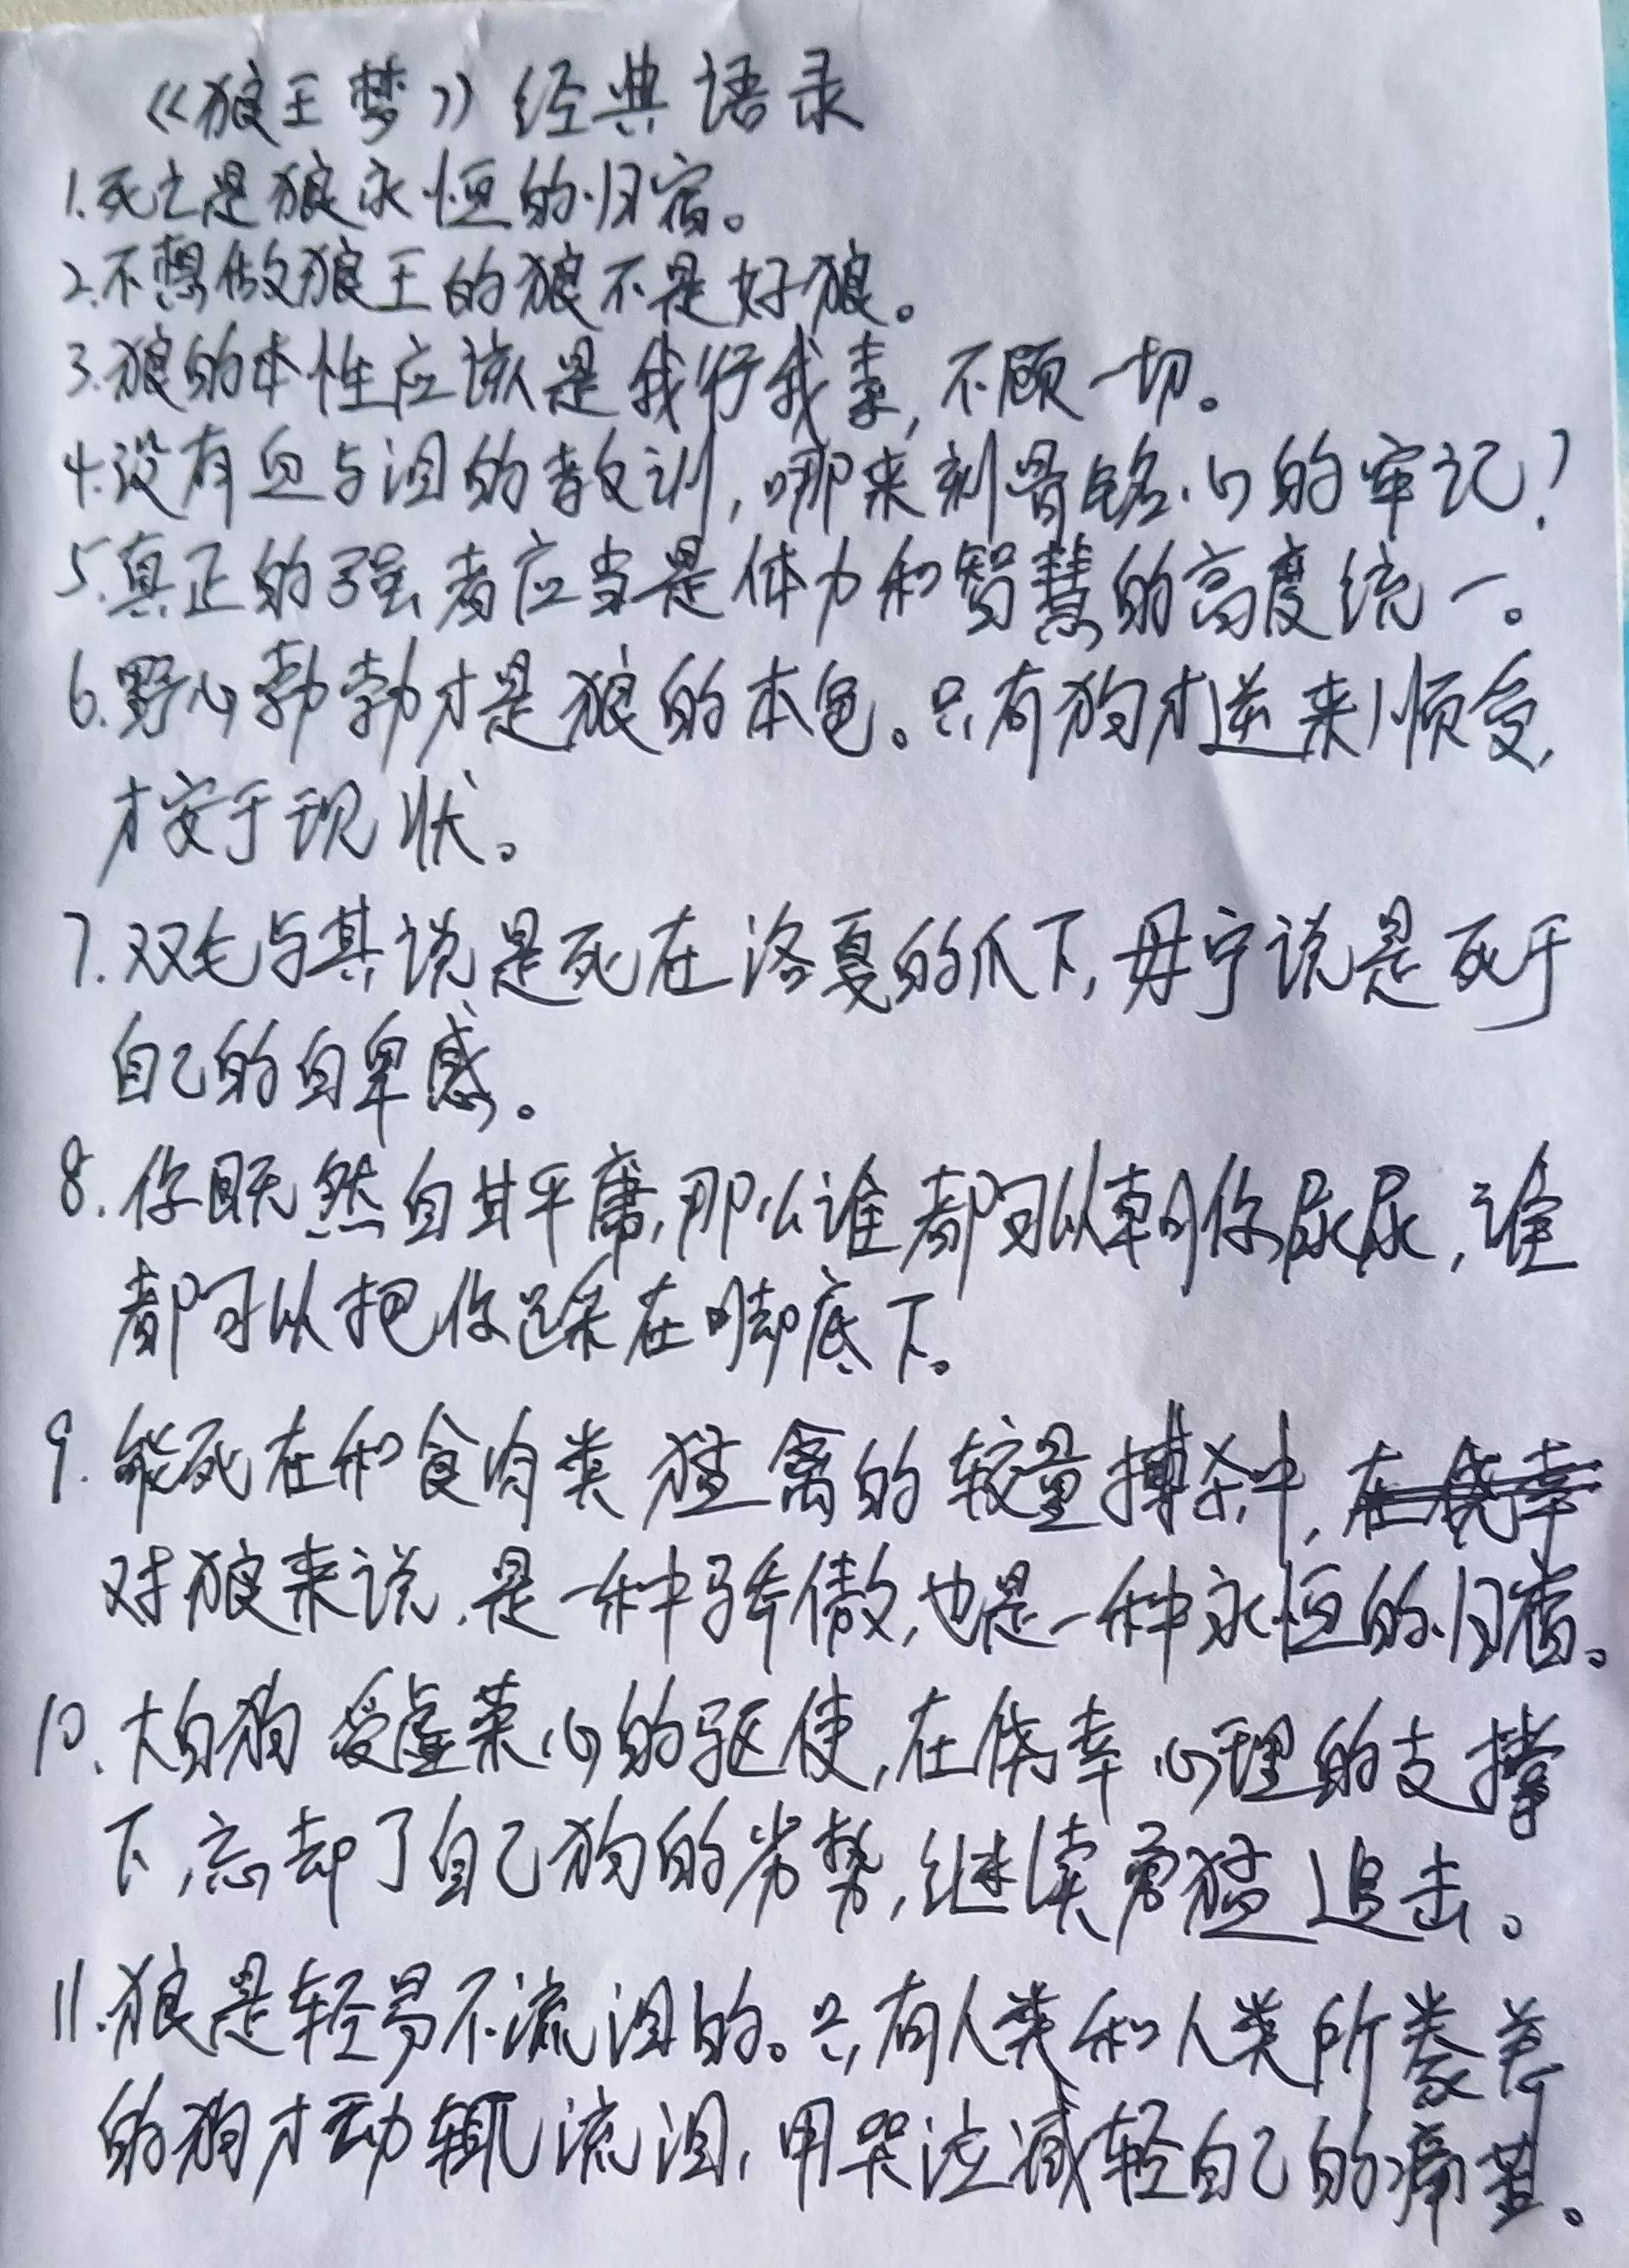 《狼王梦》经典语录
1.死亡是狼永恒的归宿。
2.不想做狼王的狼不是好狼。
3.狼的本性应该是我行我素,不顾一切。
4.没有血与泪的教训,哪来刻骨铭心的牢记?
5.真正的强者应当是体力和智慧的高度统一。
6.野心勃勃才是狼的本色。只有狗才逆来顺受,
才安于现状。
7.双毛与其说是死在洛戛的爪下,毋宁说是死于
自己的自卑感。
8.你既然自甘平庸,那么谁都可以朝你尿尿,谁
都可以把你踩在脚底下。
9.能死在和食肉类猛禽的较量搏杀中,
对狼来说,是一种骄傲,也是一种永恒的归宿。
10.大白狗受虚荣心的驱使,在侥幸心理的支撑
下,忘却了自己狗的劣势,继续勇猛追击。
11.狼是轻易不流泪的。只有人类和人类所豢养
的狗才动辄流泪,用哭泣减轻自己的痛苦。